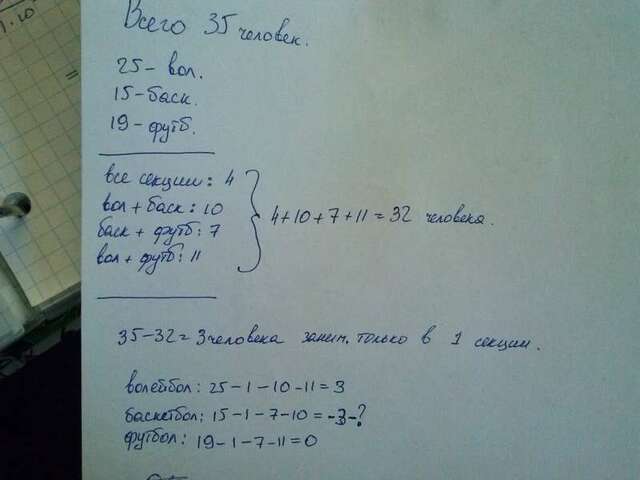 1.10
=
Всего 35 человек.
25 - вол.
15 - баск.
19 - футб.
все секции: 4
вол + баск: 10
баск + футб: 7
вол + футб: 11
4+10+7+11 = 32 человека.
35-32=3человека заним. только в 1 секции.
волейбол: 25-1-10-11=3
баскетбол: 15-1-7-10 = -3-?
футбол: 19-1-7-11=0